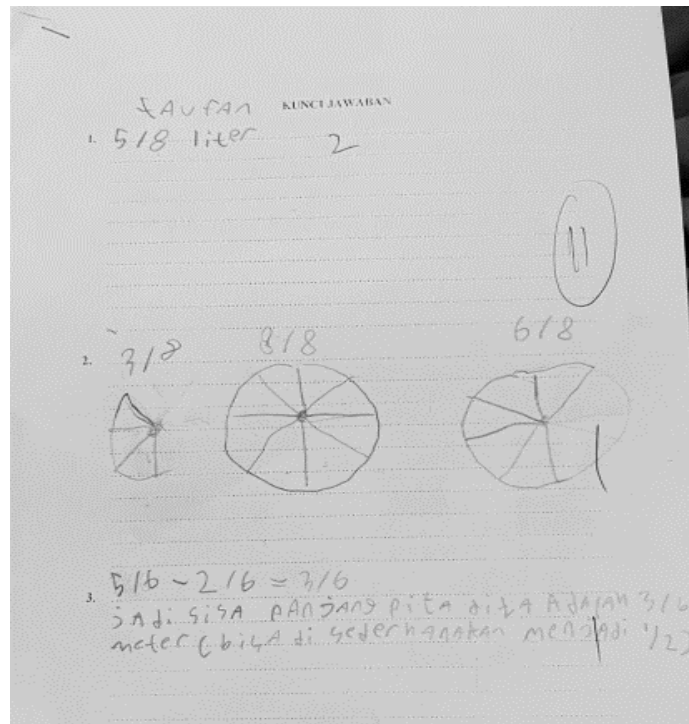 tAufAn KUNCI JAWABAN
1. 5/8 liter 2
11
2. 3/8 8/8 6/8
3. 5/6 - 2/6 = 3/6
jAdi sisA pAnjAng pitA ditA AdAlAh 3/6
meter (bisA di sederhanakan menjAdi 1/2)